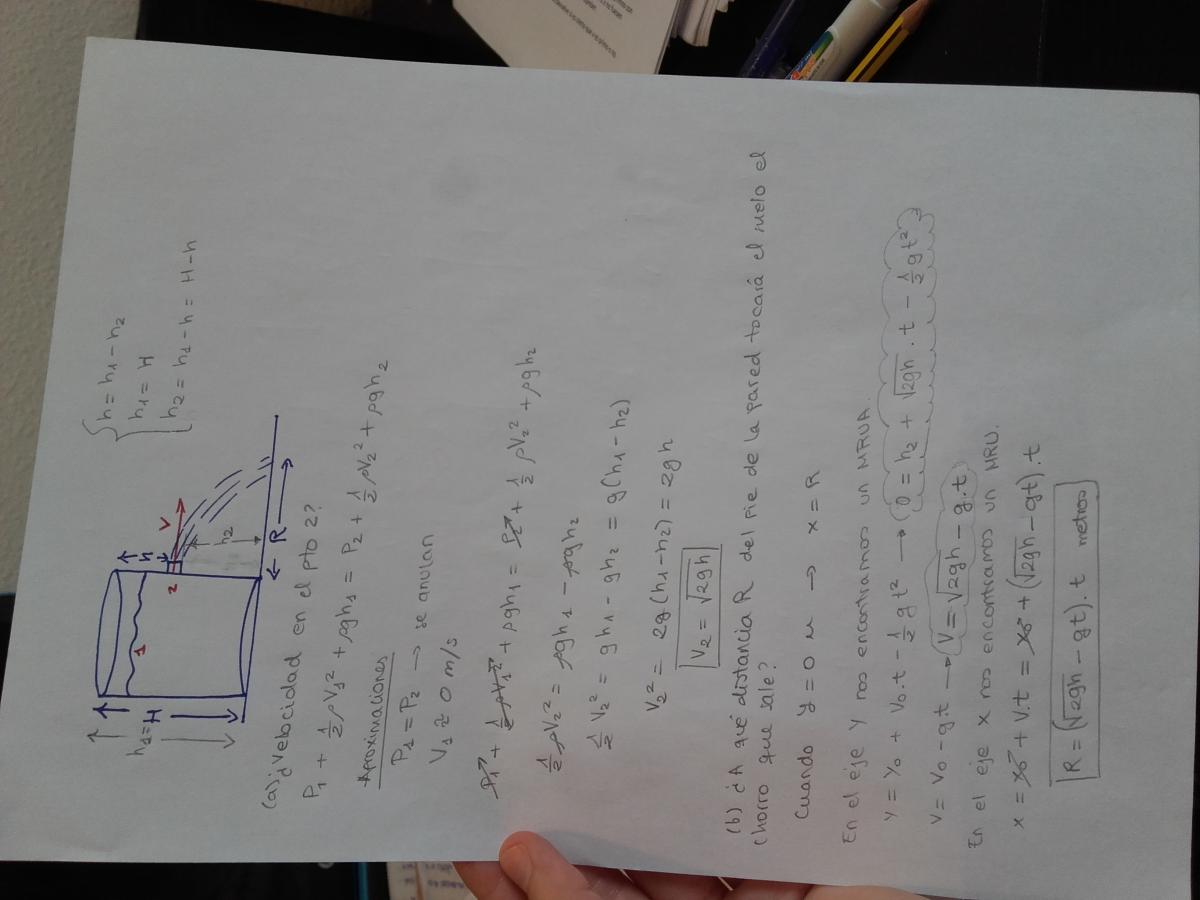 h = h₁ - h₂
h₁ = H
h₂ = h₁ - h = H - h
h₁ = H
1
h
2
V
h₂
R
(a) ¿Velocidad en el pto 2?
P₁ + ½ ρV₁² + ρgh₁ = P₂ + ½ ρV₂² + ρgh₂
Aproximaciones
P₁ = P₂ → se anulan
V₁ ≈ 0 m/s
P₁ + ½ ρV₁² + ρgh₁ = P₂ + ½ ρV₂² + ρgh₂
½ ρV₂² = ρgh₁ - ρgh₂
½ V₂² = gh₁ - gh₂ = g(h₁ - h₂)
V₂² = 2g(h₁ - h₂) = 2gh
V₂ = √2gh
(b) ¿A qué distancia R del pie de la pared tocará el suelo el
chorro que sale?
Cuando y = 0 m → x = R
En el eje Y nos encontramos un MRUA.
y = y₀ + v₀.t - ½ g t² → 0 = h₂ + √2gh . t - ½ g t²
V = V₀ - g.t → V = √2gh - g.t
En el eje x nos encontramos un MRU.
x = x₀ + V.t = x₀ + (√2gh - gt).t
R = (√2gh - gt).t metros